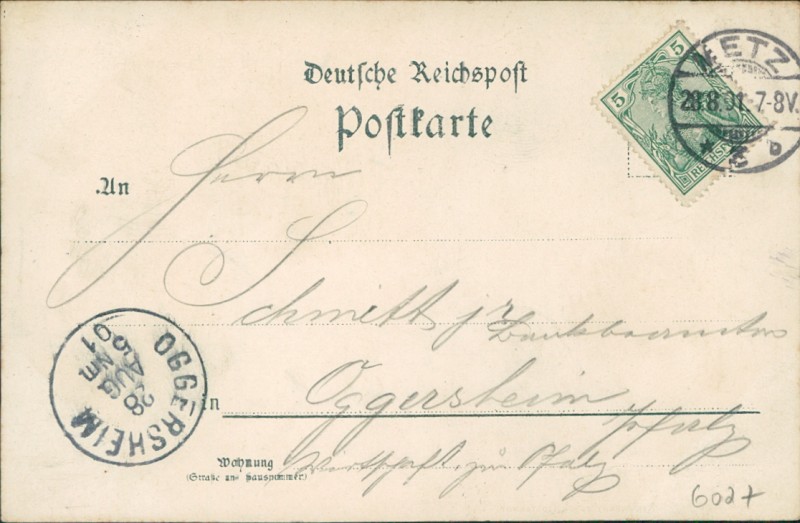 Deutsche Reichspost
Postkarte
5
5
REICHSP
METZ
28.8.01.7-8V.
* b
An Herrn
Schmitt jr
Bankbeamter
OGGERSHEIM
28
AUG
NM
01
in Oggersheim
Pfalz
Wohnung
(Straße und Hausnummer)
Wirtschaft zur Pfalz
6027